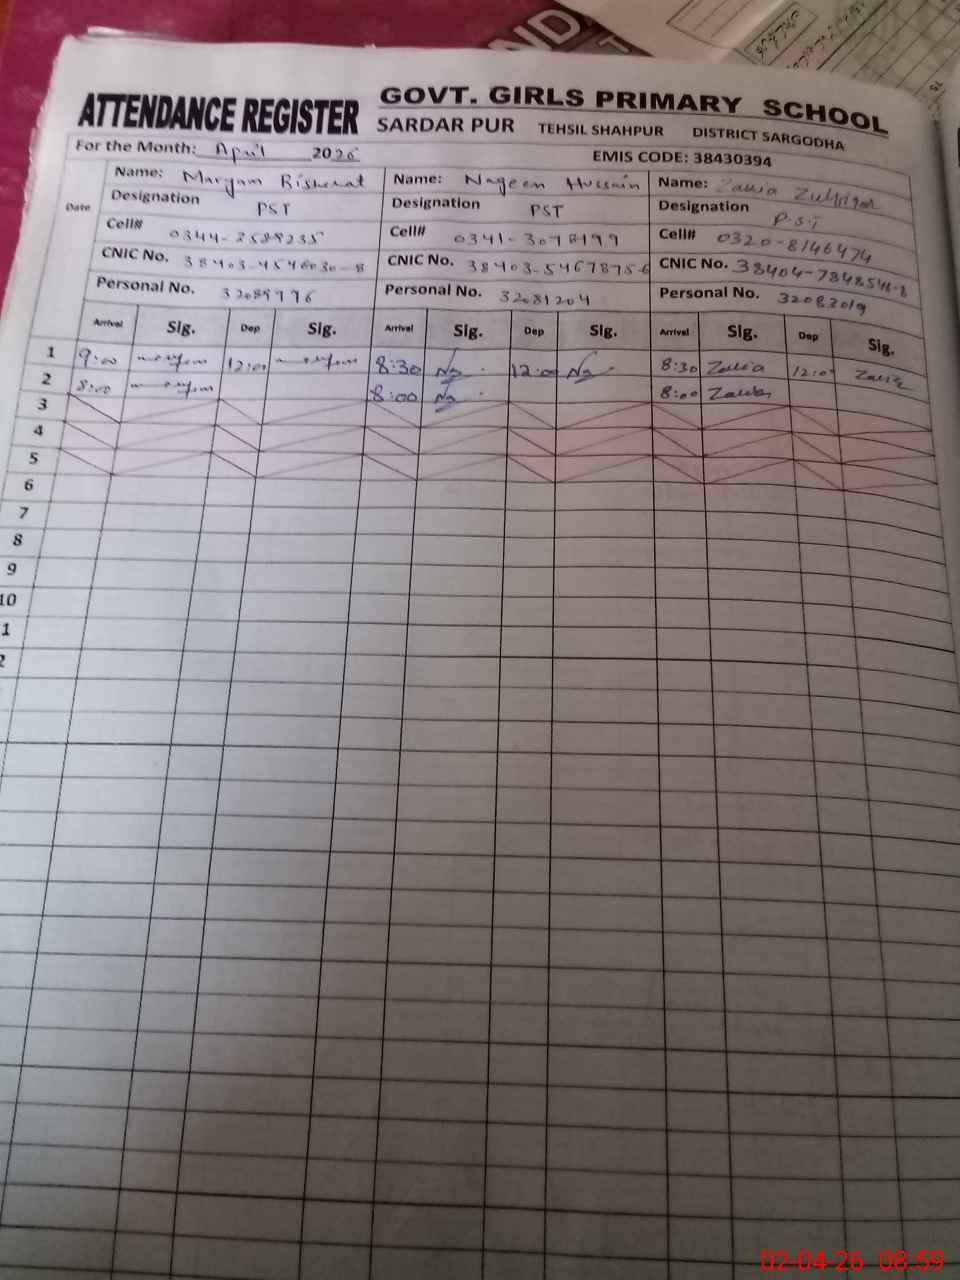 ND
ATTENDANCE REGISTER GOVT. GIRLS PRIMARY SCHOOL
SARDAR PUR TEHSIL SHAHPUR DISTRICT SARGODHA
For the Month: April 2026 EMIS CODE: 38430394
Date Name: Maryam Name: Nageen Hussain Name: Zauia Zulfiqar
Designation PST Designation PST Designation P.S.T
Cell# 0344-2589235 Cell# 0341-3078199 Cell# 0320-8146474
CNIC No. CNIC No. 38403-5467875-6 CNIC No. 38404-7848546-8
Personal No. 32089796 Personal No. 32081204 Personal No. 32083019
Arrival Sig. Dep Sig. Arrival Sig. Dep Sig. Arrival Sig. Dep Sig.
1 9:00 maryam 12:00 maryam 8:30 Na 12:00 Na 8:30 Zauia 12:00 Zauia
2 8:00 maryam 8:00 Na 8:00 Zauia
3
4
5
6
7
8
9
10
1
2
02-04-26 08:59